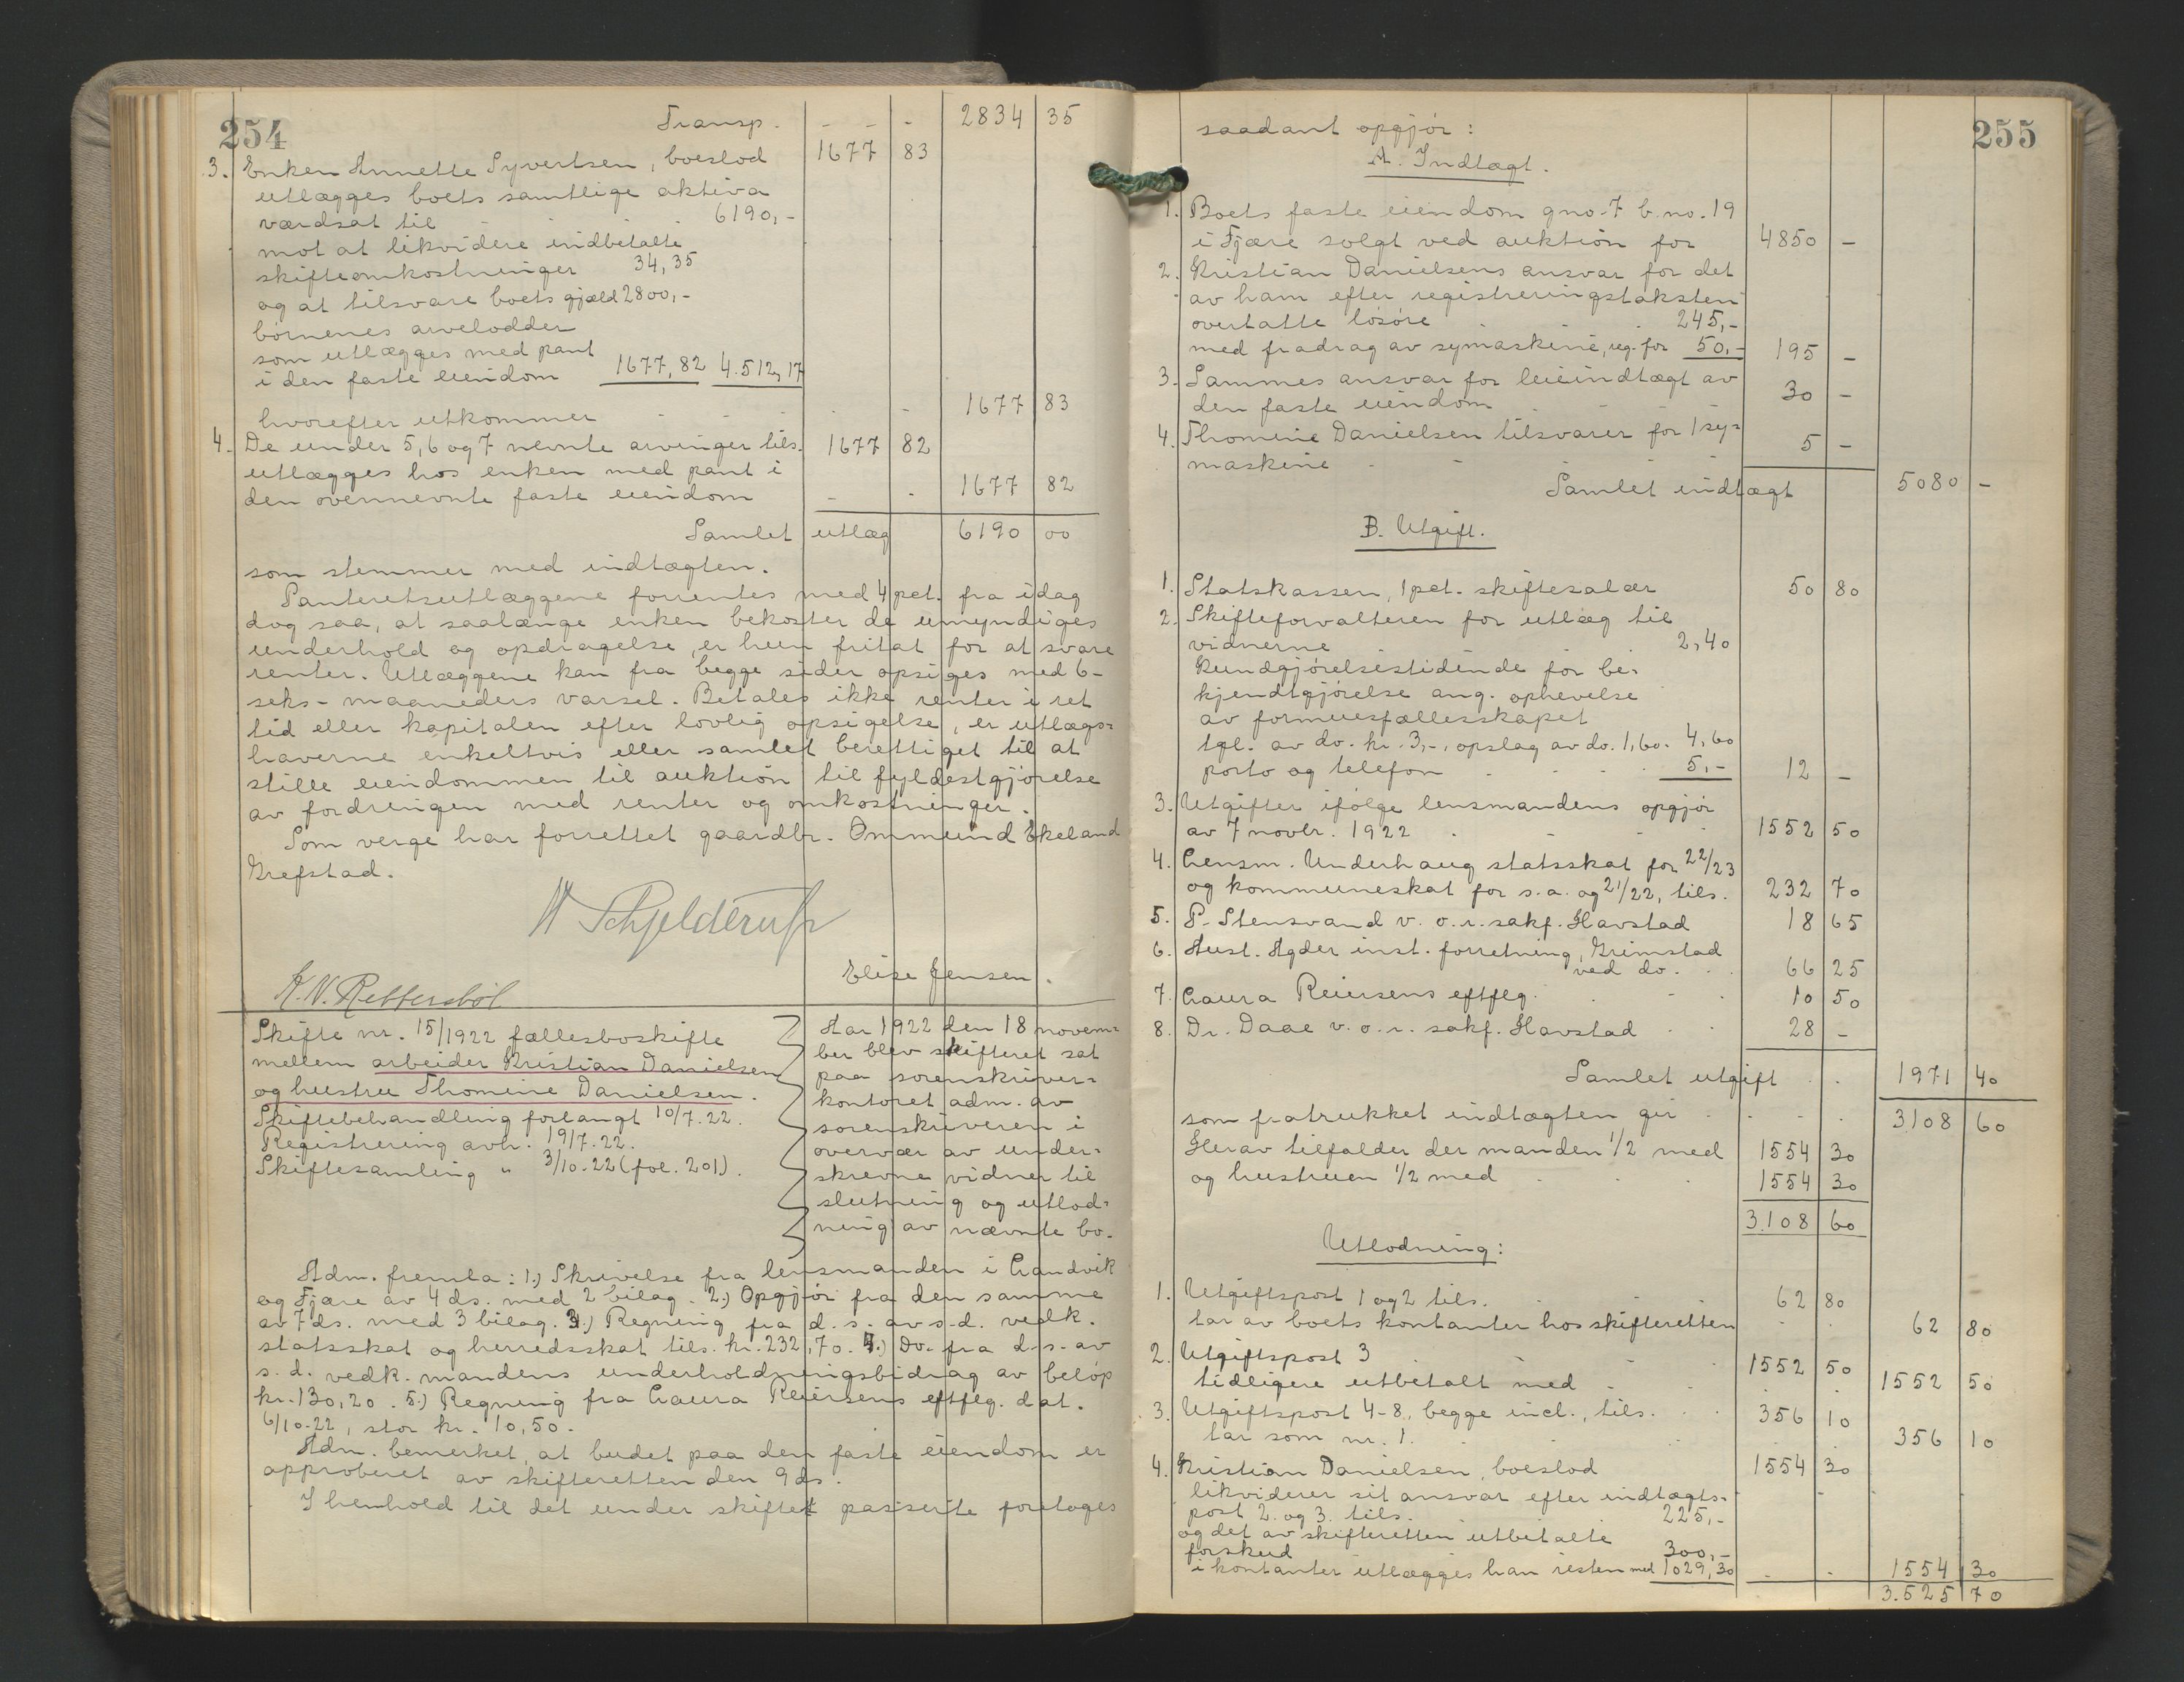 254
Transp. - - - 2834 35
3. Enken Annette Syvertsen, boeslod 1677 83
utlægges boets samtlige aktiva
værdsat til - - - - 6190,-
mot at likvidere indbetalte
skifteomkostninger 34,35
og at tilsvare boets gjæld 2800,-
børnenes arvelodder
som utlægges med pant
i den faste eiendom 1677,82 4.512,17
hvorefter utkommer - - - - - 1677 83
4. De under 5, 6 og 7 nevnte arvinger tils. 1677 82
utlægges hos enken med pant i
den ovennevnte faste eiendom - - 1677 82
Samlet utlæg 6190 00
som stemmer med indtægten.
Panteretsutlæggene forrentes med 4 pct. fra idag
dog saa, at saalænge enken bekoster de umyndiges
underhold og opdragelse, er hun fritat for at svare
renter. Utlæggene kan fra begge sider opsiges med 6-
seks- maaneders varsel. Betales ikke renter i ret
tid eller kapitalen efter lovlig opsigelse, er utlægs-
haverne enkeltvis eller samlet berettiget til at
stille eiendommen til auktion til fyldestgjørelse
av fordringen med renter og omkostninger.
Som verge har forrettet gaardbr. Ommund Ekeland
Grefstad.
H Schjelderup
Elise Jensen.
K. N. Rettersbøl
Skifte nr. 15/1922 fællesboskifte
mellem arbeider Kristian Danielsen
og hustru Thomine Danielsen.
Skiftebehandling forlangt 10/7.22.
Registrering avh. 19/7.22.
Skiftesamling " 3/10.22 (fol. 201).
Aar 1922 den 18 novem-
ber blev skifteret sat
paa sorenskriver-
kontoret adm. av
sorenskriveren i
overvær av under-
skrevne vidner til
slutning og utlod-
ning av nævnte bo.
Adm. fremla: 1.) Skrivelse fra lensmanden i Landvik
og Fjære av 4 ds. med 2 bilag. 2.) Opgjør fra den samme
av 7 ds. med 3 bilag. 3.) Regning fra d. s. av s.d. vedk.
statsskat og herredsskat tils. kr. 232,70. 4.) Do. fra d.s. av
s. d. vedk. mandens underholdningsbidrag av beløp
kr. 130,20. 5.) Regning fra Laura Reiersens eftflg. dat.
6/10-22, stor kr. 10,50.
Adm. bemerket, at budet paa den faste eiendom er
approberet av skifteretten den 9 ds.
I henhold til det under skiftet passerte foretoges
255
saadant opgjør:
A. Indtægt.
1. Boets faste eiendom gno. 7 b.no. 19
i Fjære solgt ved auktion for 4850 -
2. Kristian Danielsens ansvar for det
av ham efter registreringstaksten
overtatte løsøre - - 245,-
med fradrag av symaskine, reg. for 50,- 195 -
3. Sammes ansvar for leieindtægt av
den faste eiendom - - - 30 -
4. Thomine Danielsen tilsvarer for 1 sy-
maskine - - - - - 5 -
Samlet indtægt 5080 -
B. Utgift.
1. Statskassen, 1 pct. skiftesalær 50 80
2. Skifteforvalteren for utlæg til
vidnerne 2,40
Kundgjørelsestidende for be-
kjendtgjørelse ang. ophevelse
av formuesfællesskapet
tgl. av do. kr. 3,-, opslag av do. 1,60. 4,60
porto og telefon - - - - 5,- 12 -
3. Utgifter ifølge lensmandens opgjør
av 7 novbr. 1922 - - - - 1552 50
4. Lensm. Underhaug statsskat for 22/23
og kommuneskat for s. a. og 21/22, tils. 232 70
5. P. Stensvand v. o.r. sakf. Havstad 18 65
6. Aust. Agder inst. forretning, Grimstad
ved do. - - 66 25
7. Laura Reiersens eftflg. - - - 10 50
8. Dr. Daae v. o. r. sakf. Havstad - - 28 -
Samlet utgift - - 1971 40
som fratrukket indtægten gir - - - - 3108 60
Herav tilfalder der manden 1/2 med 1554 30
og hustruen 1/2 med - - - 1554 30
3.108 60
Utlodning:
1. Utgiftspost 1 og 2 tils. - - 62 80
tar av boets kontanter hos skifteretten - - 62 80
2. Utgiftspost 3 - - - 1552 50
tidligere utbetalt med - - - - 1552 50
3. Utgiftspost 4-8, begge incl., tils. - - 356 10
tar som nr. 1. - - - - - 356 10
4. Kristian Danielsen, boeslod 1554 30
likviderer sit ansvar efter indtægts-
post 2. og 3. tils. 225,-
og det av skifteretten utbetalte
forskud 300,-
i kontanter utlægges han resten med 1029,30 - - 1554 30
3.525 70